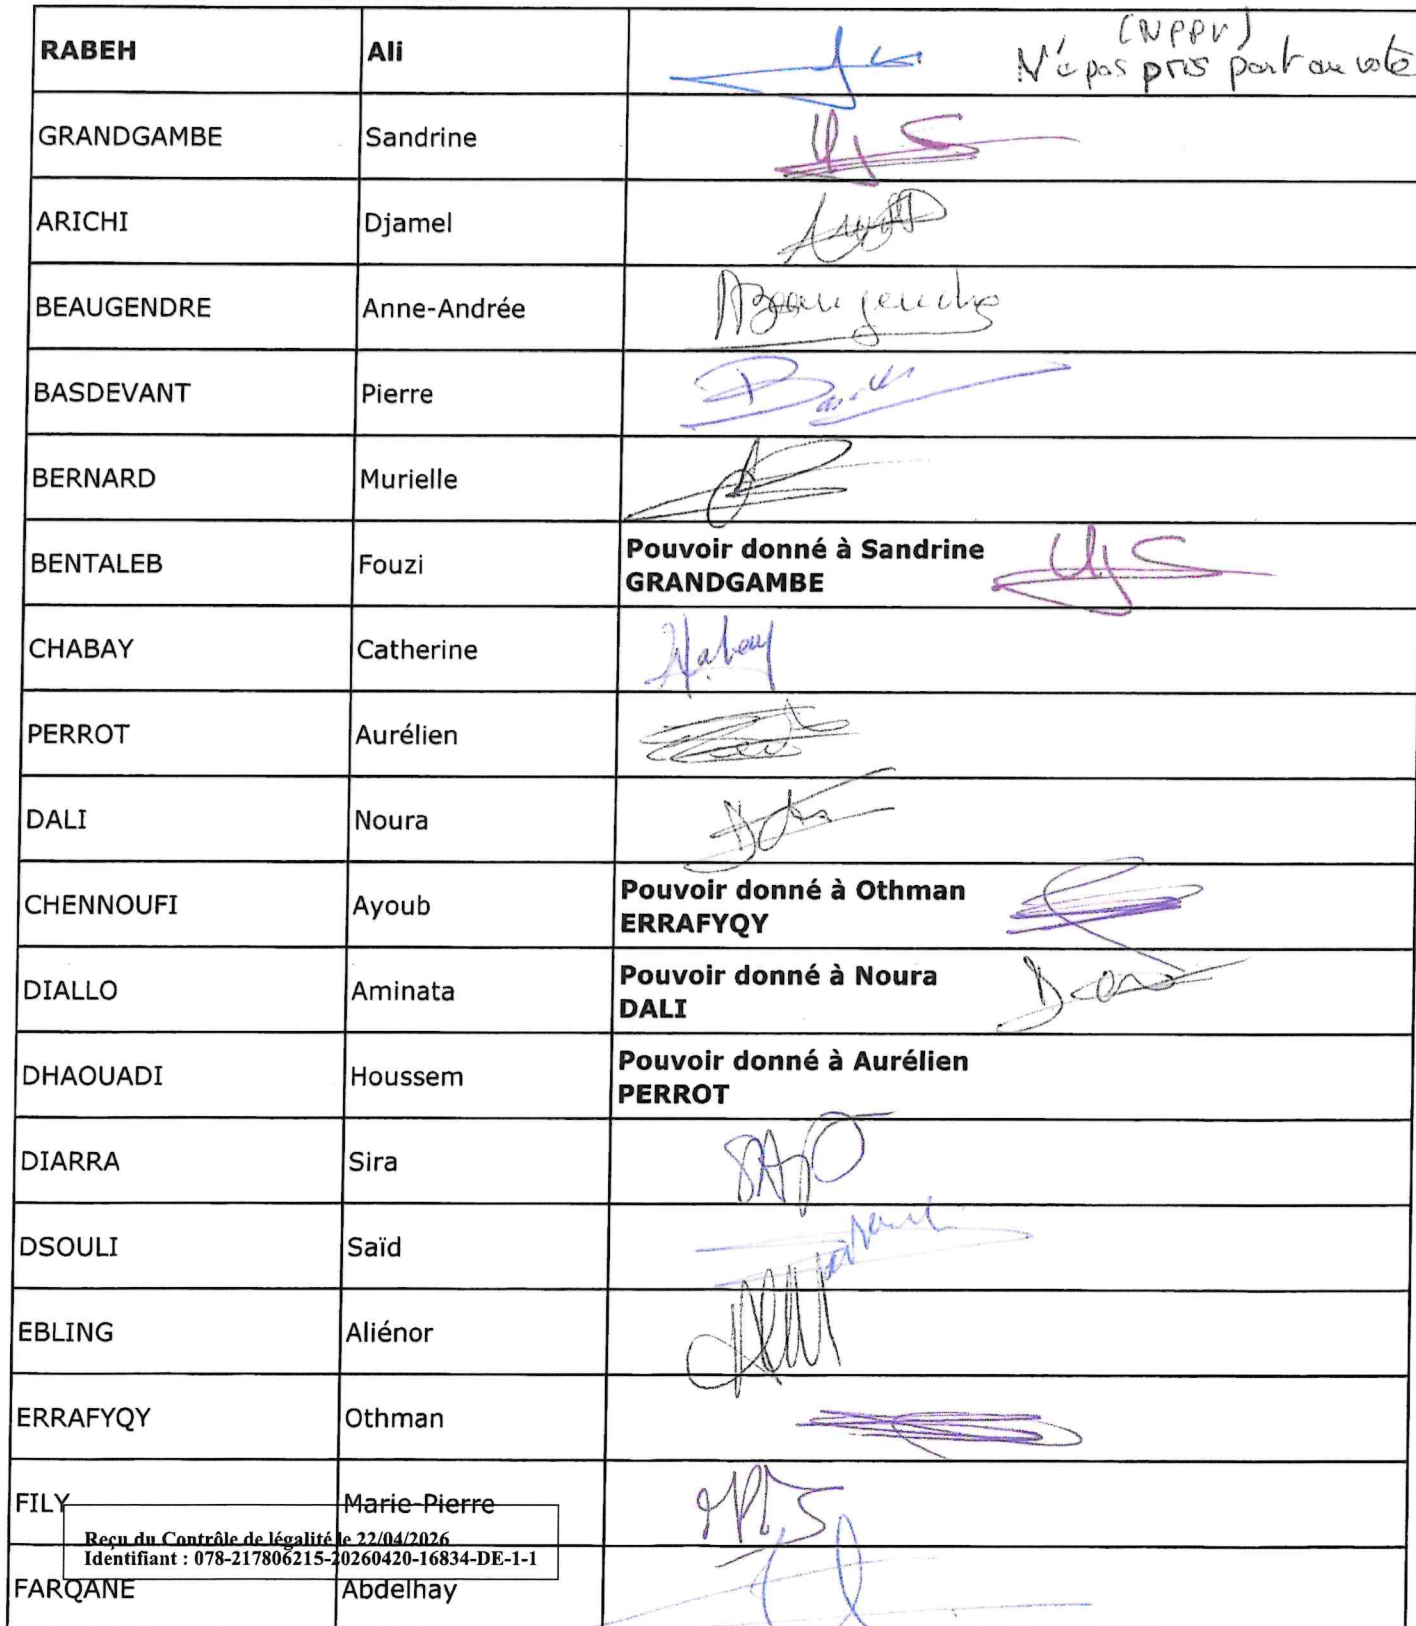 RABEH Ali (NPPV)
N'a pas pris part au vote
GRANDGAMBE Sandrine
ARICHI Djamel
BEAUGENDRE Anne-Andrée
BASDEVANT Pierre
BERNARD Murielle
BENTALEB Fouzi Pouvoir donné à Sandrine
GRANDGAMBE
CHABAY Catherine
PERROT Aurélien
DALI Noura
CHENNOUFI Ayoub Pouvoir donné à Othman
ERRAFYQY
DIALLO Aminata Pouvoir donné à Noura
DALI
DHAOUADI Houssem Pouvoir donné à Aurélien
PERROT
DIARRA Sira
DSOULI Saïd
EBLING Aliénor
ERRAFYQY Othman
FILY Marie-Pierre
Reçu du Contrôle de légalité le 22/04/2026
Identifiant : 078-217806215-20260420-16834-DE-1-1
FARQANE Abdelhay